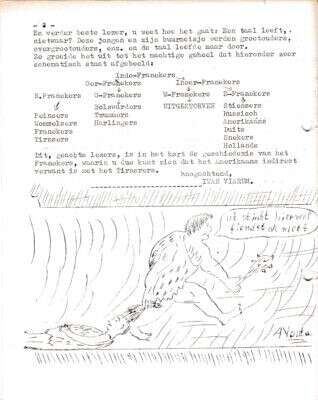 - 2 -
En verder beste lezer, u weet hoe het gaat: Een taal leeft,
nietwaar? Deze jongen en zijn buurmeisje werden grootouders,
overgrootouders, enz. en de taal leefde maar door.
Zo groeide het uit tot het machtige geheel dat hieronder zeer
schematisch staat afgebeeld:
Indo-Franekers
Oer-Franekers Inser-Franekers
N.Franekers O-Franekers W-Franekers D-Franekers
Peinsers Bolswarders UITGESTORVEN Stiensers
Tzummers Russisch
Franekers Harlingers Amerikaans
Tirnsers Duits
Sneekers
Hollands
Dit, geachte lezers, is in het kort de geschiedenis van het
Franekers, waarin u dus kunt zien dat het amerikaans indirect
verwant is met het Tirnsers.
hoogachtend,
IVAN VIARUM.